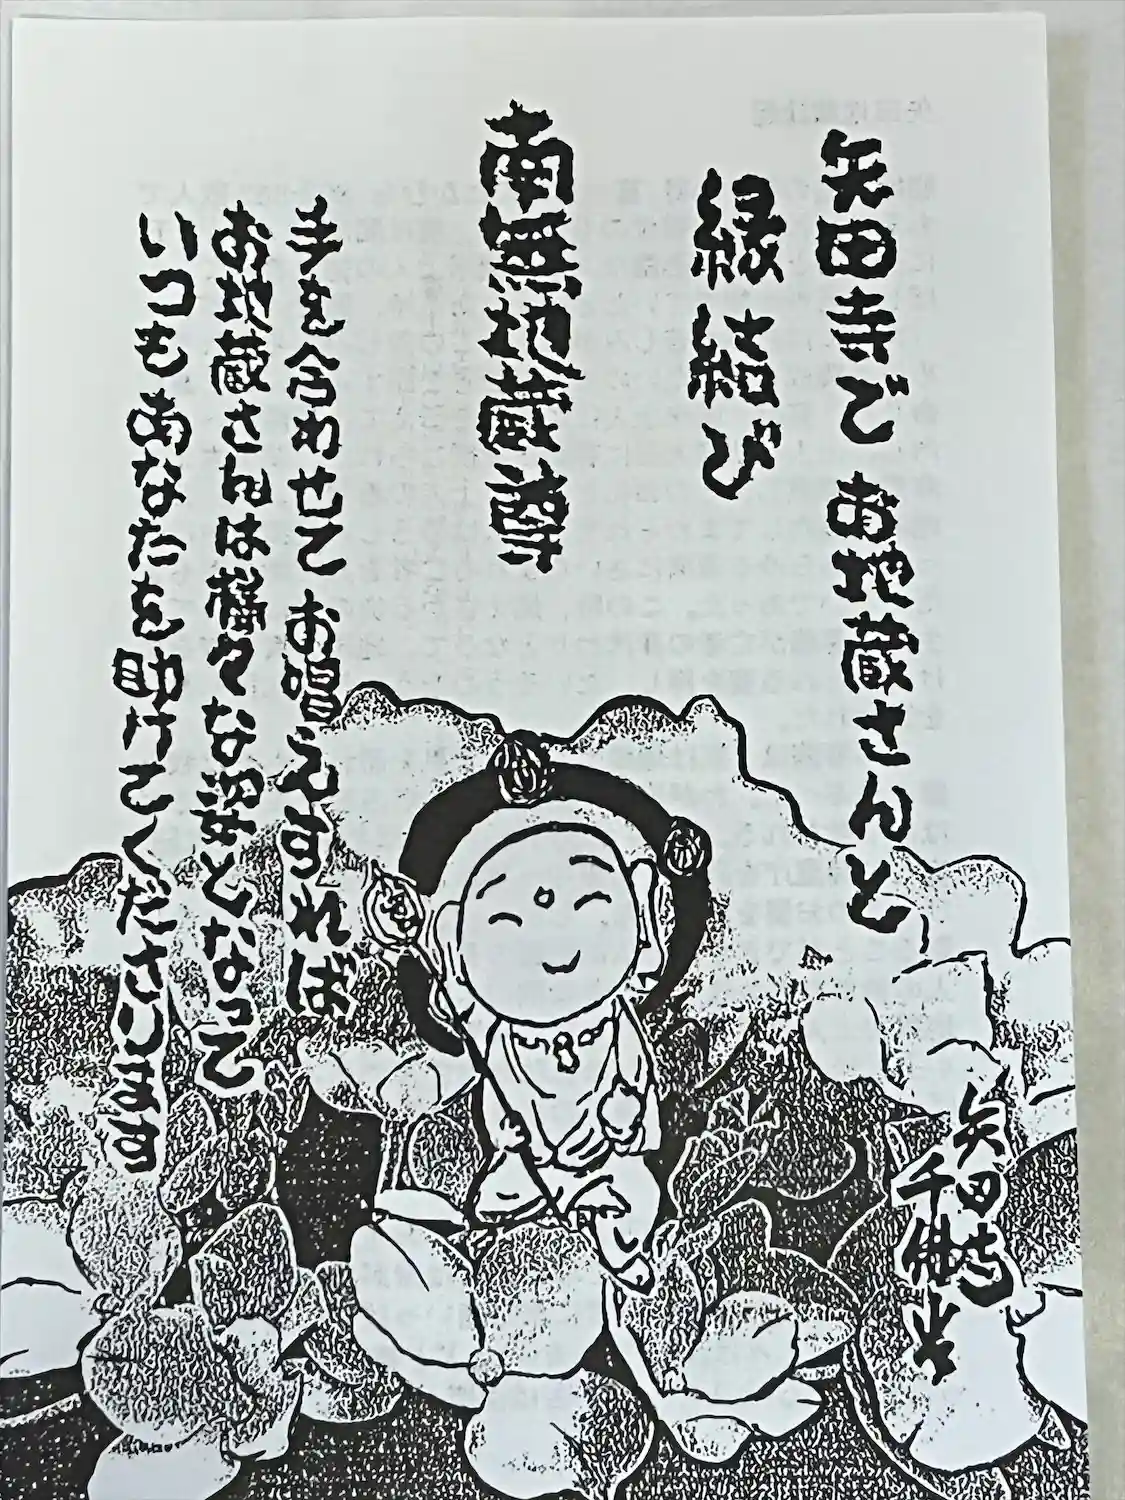 矢田寺で お地蔵さんと
縁結び
南無地蔵尊
手を合わせて お唱えすれば
お地蔵さんは様々な姿となって
いつもあなたを助けてくださします
矢田寺
千佛堂